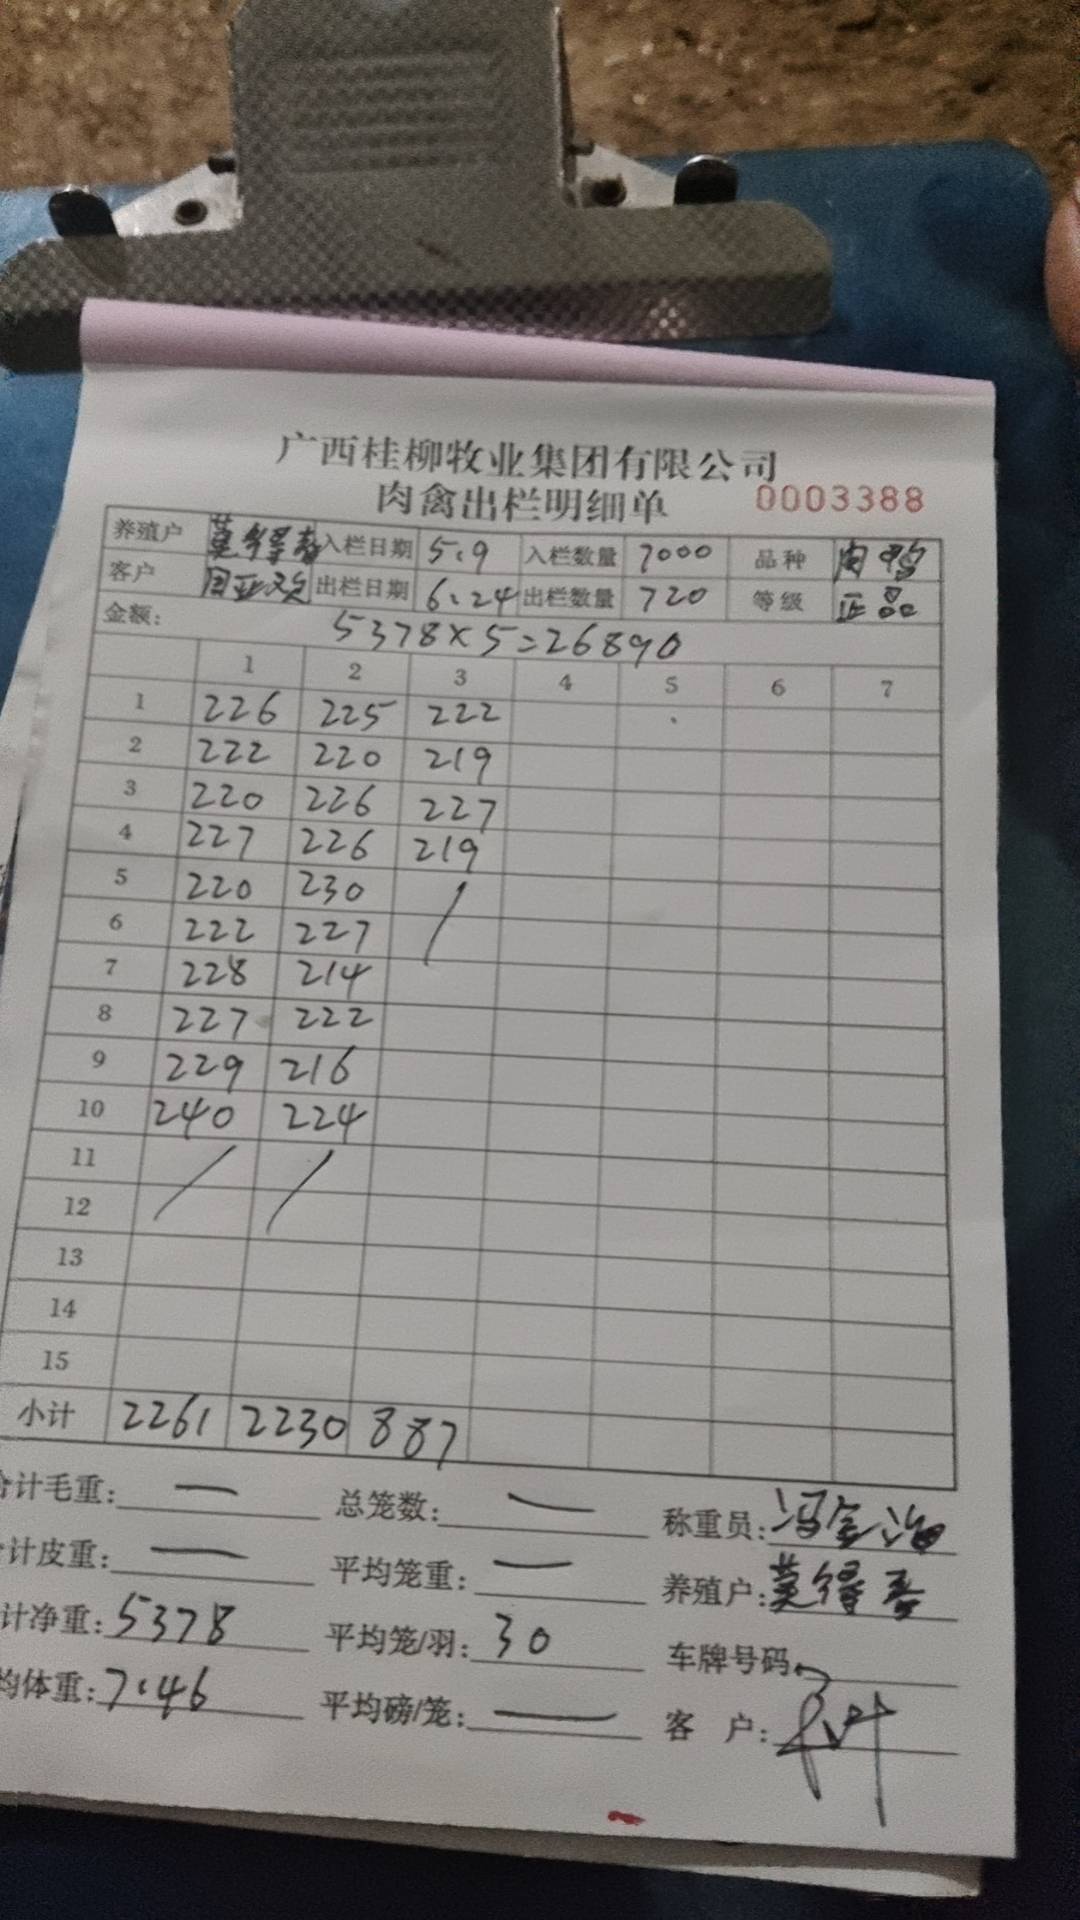 广西桂柳牧业集团有限公司
肉禽出栏明细单 0003388
养殖户 莫得春 入栏日期 5.9 入栏数量 7000 品种 肉鸭
客户 周亚欢 出栏日期 6.24 出栏数量 720 等级 正品
金额: 5378×5=26890
1 2 3 4 5 6 7
1 226 225 222
2 222 220 219
3 220 226 227
4 227 226 219
5 220 230 /
6 222 227
7 228 214
8 227 222
9 229 216
10 240 224
11 / /
12
13
14
15
小计 2261 2230 887
合计毛重: — 总笼数: — 称重员:
计皮重: — 平均笼重: — 养殖户: 莫得春
计净重: 5378 平均笼/羽: 30 车牌号码
均体重: 7.46 平均磅/笼: — 客 户: